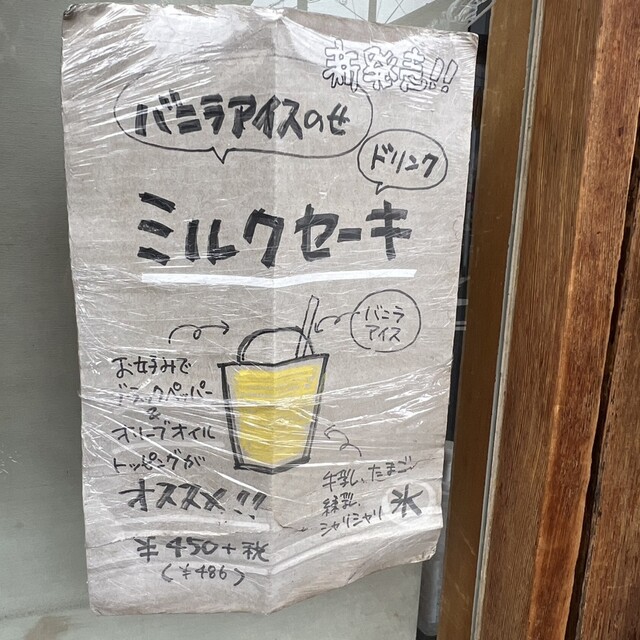 新発売!!
バニラアイスのせ
ドリンク
ミルクセーキ
バニラ
アイス
お好みで
ブラックペッパー
&
オリーブオイル
トッピングが
オススメ!!
¥450+税
(¥486)
牛乳、たまご
練乳、
シャリシャリ氷